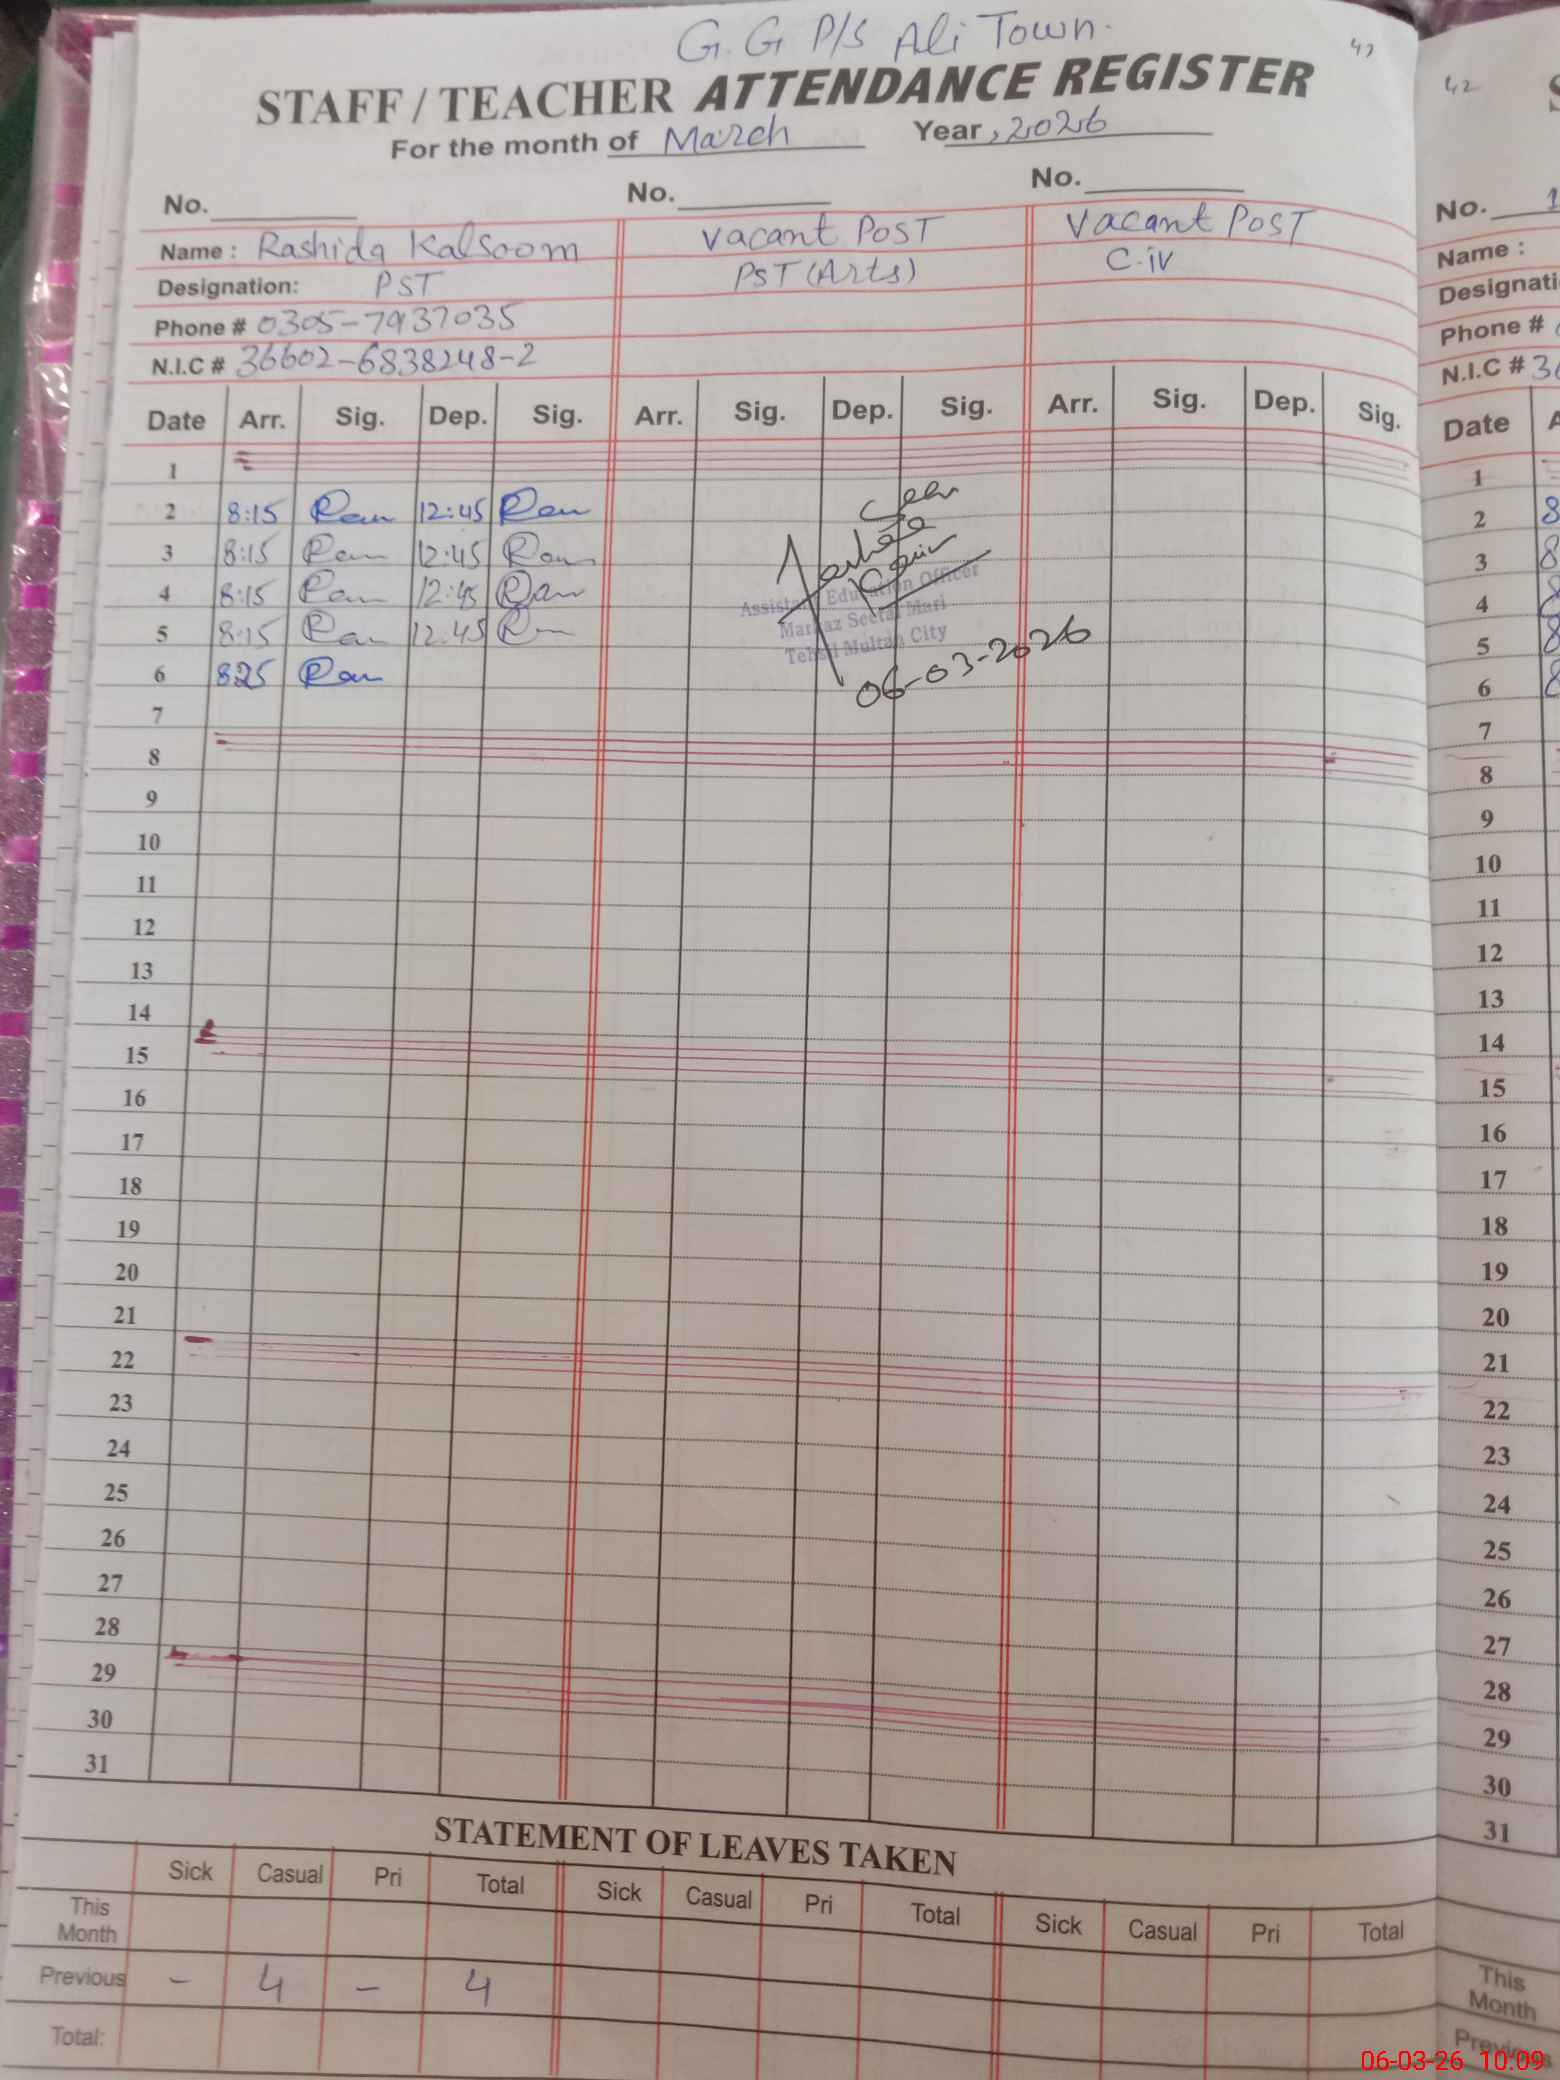 G.G P/S Ali Town.
41
STAFF / TEACHER ATTENDANCE REGISTER
For the month of March Year, 2026
No. No. No.
Name : Rashida Kalsoom Vacant PosT Vacant PosT
Designation: PST PST (Arts) C.iv
Phone # 0305-7937035
N.I.C # 36602-6838248-2
Date Arr. Sig. Dep. Sig. Arr. Sig. Dep. Sig. Arr. Sig. Dep. Sig.
1
2 8:15 12:45
3 8:15 12:45
4 8:15 12:45
5 8:15 12:45
6 8:25
Seen
Assistant Education Officer
Markaz Seetal Mari
Tehsil Multan City
06-03-2026
7
8
9
10
11
12
13
14
15
16
17
18
19
20
21
22
23
24
25
26
27
28
29
30
31
STATEMENT OF LEAVES TAKEN
Sick Casual Pri Total Sick Casual Pri Total Sick Casual Pri Total
This Month
Previous - 4 - 4
Total:
42
No. 1
Name :
Designati
Phone #
N.I.C # 36
Date A
1
2 8
3 8
4 8
5 8
6 8
7
8
9
10
11
12
13
14
15
16
17
18
19
20
21
22
23
24
25
26
27
28
29
30
31
This
Month
Previous
06-03-26 10:09